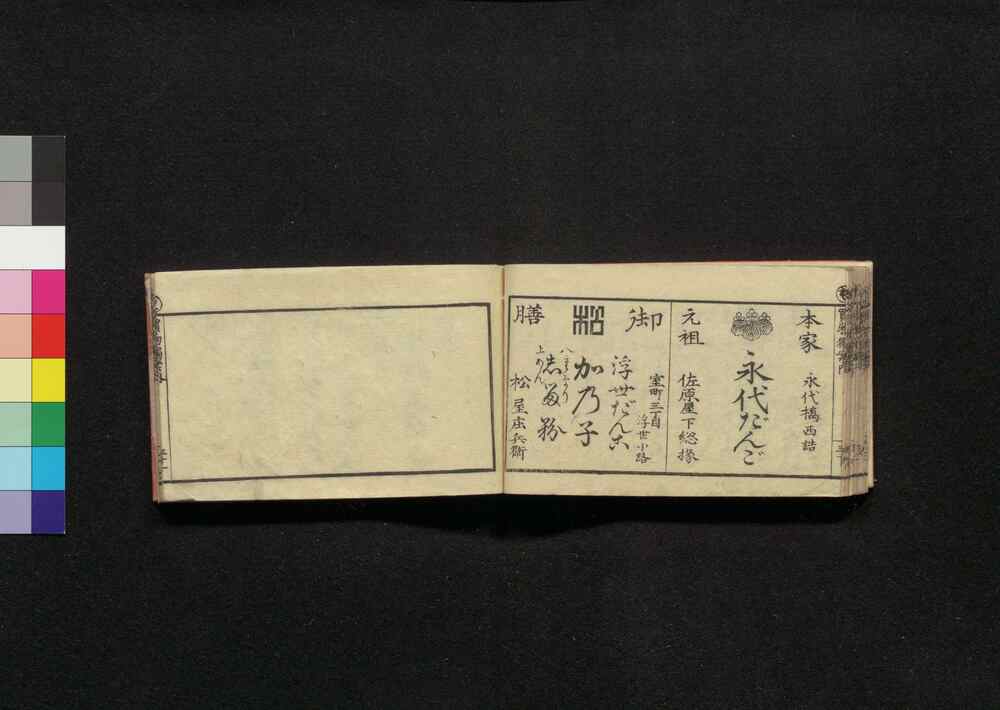 本家
永代橋西詰
永代だんご
元祖
佐原屋下総掾
御
室町三丁目
浮世小路
浮世だんご
松
加乃子
志る粉
上あん
膳
松屋庄兵衛